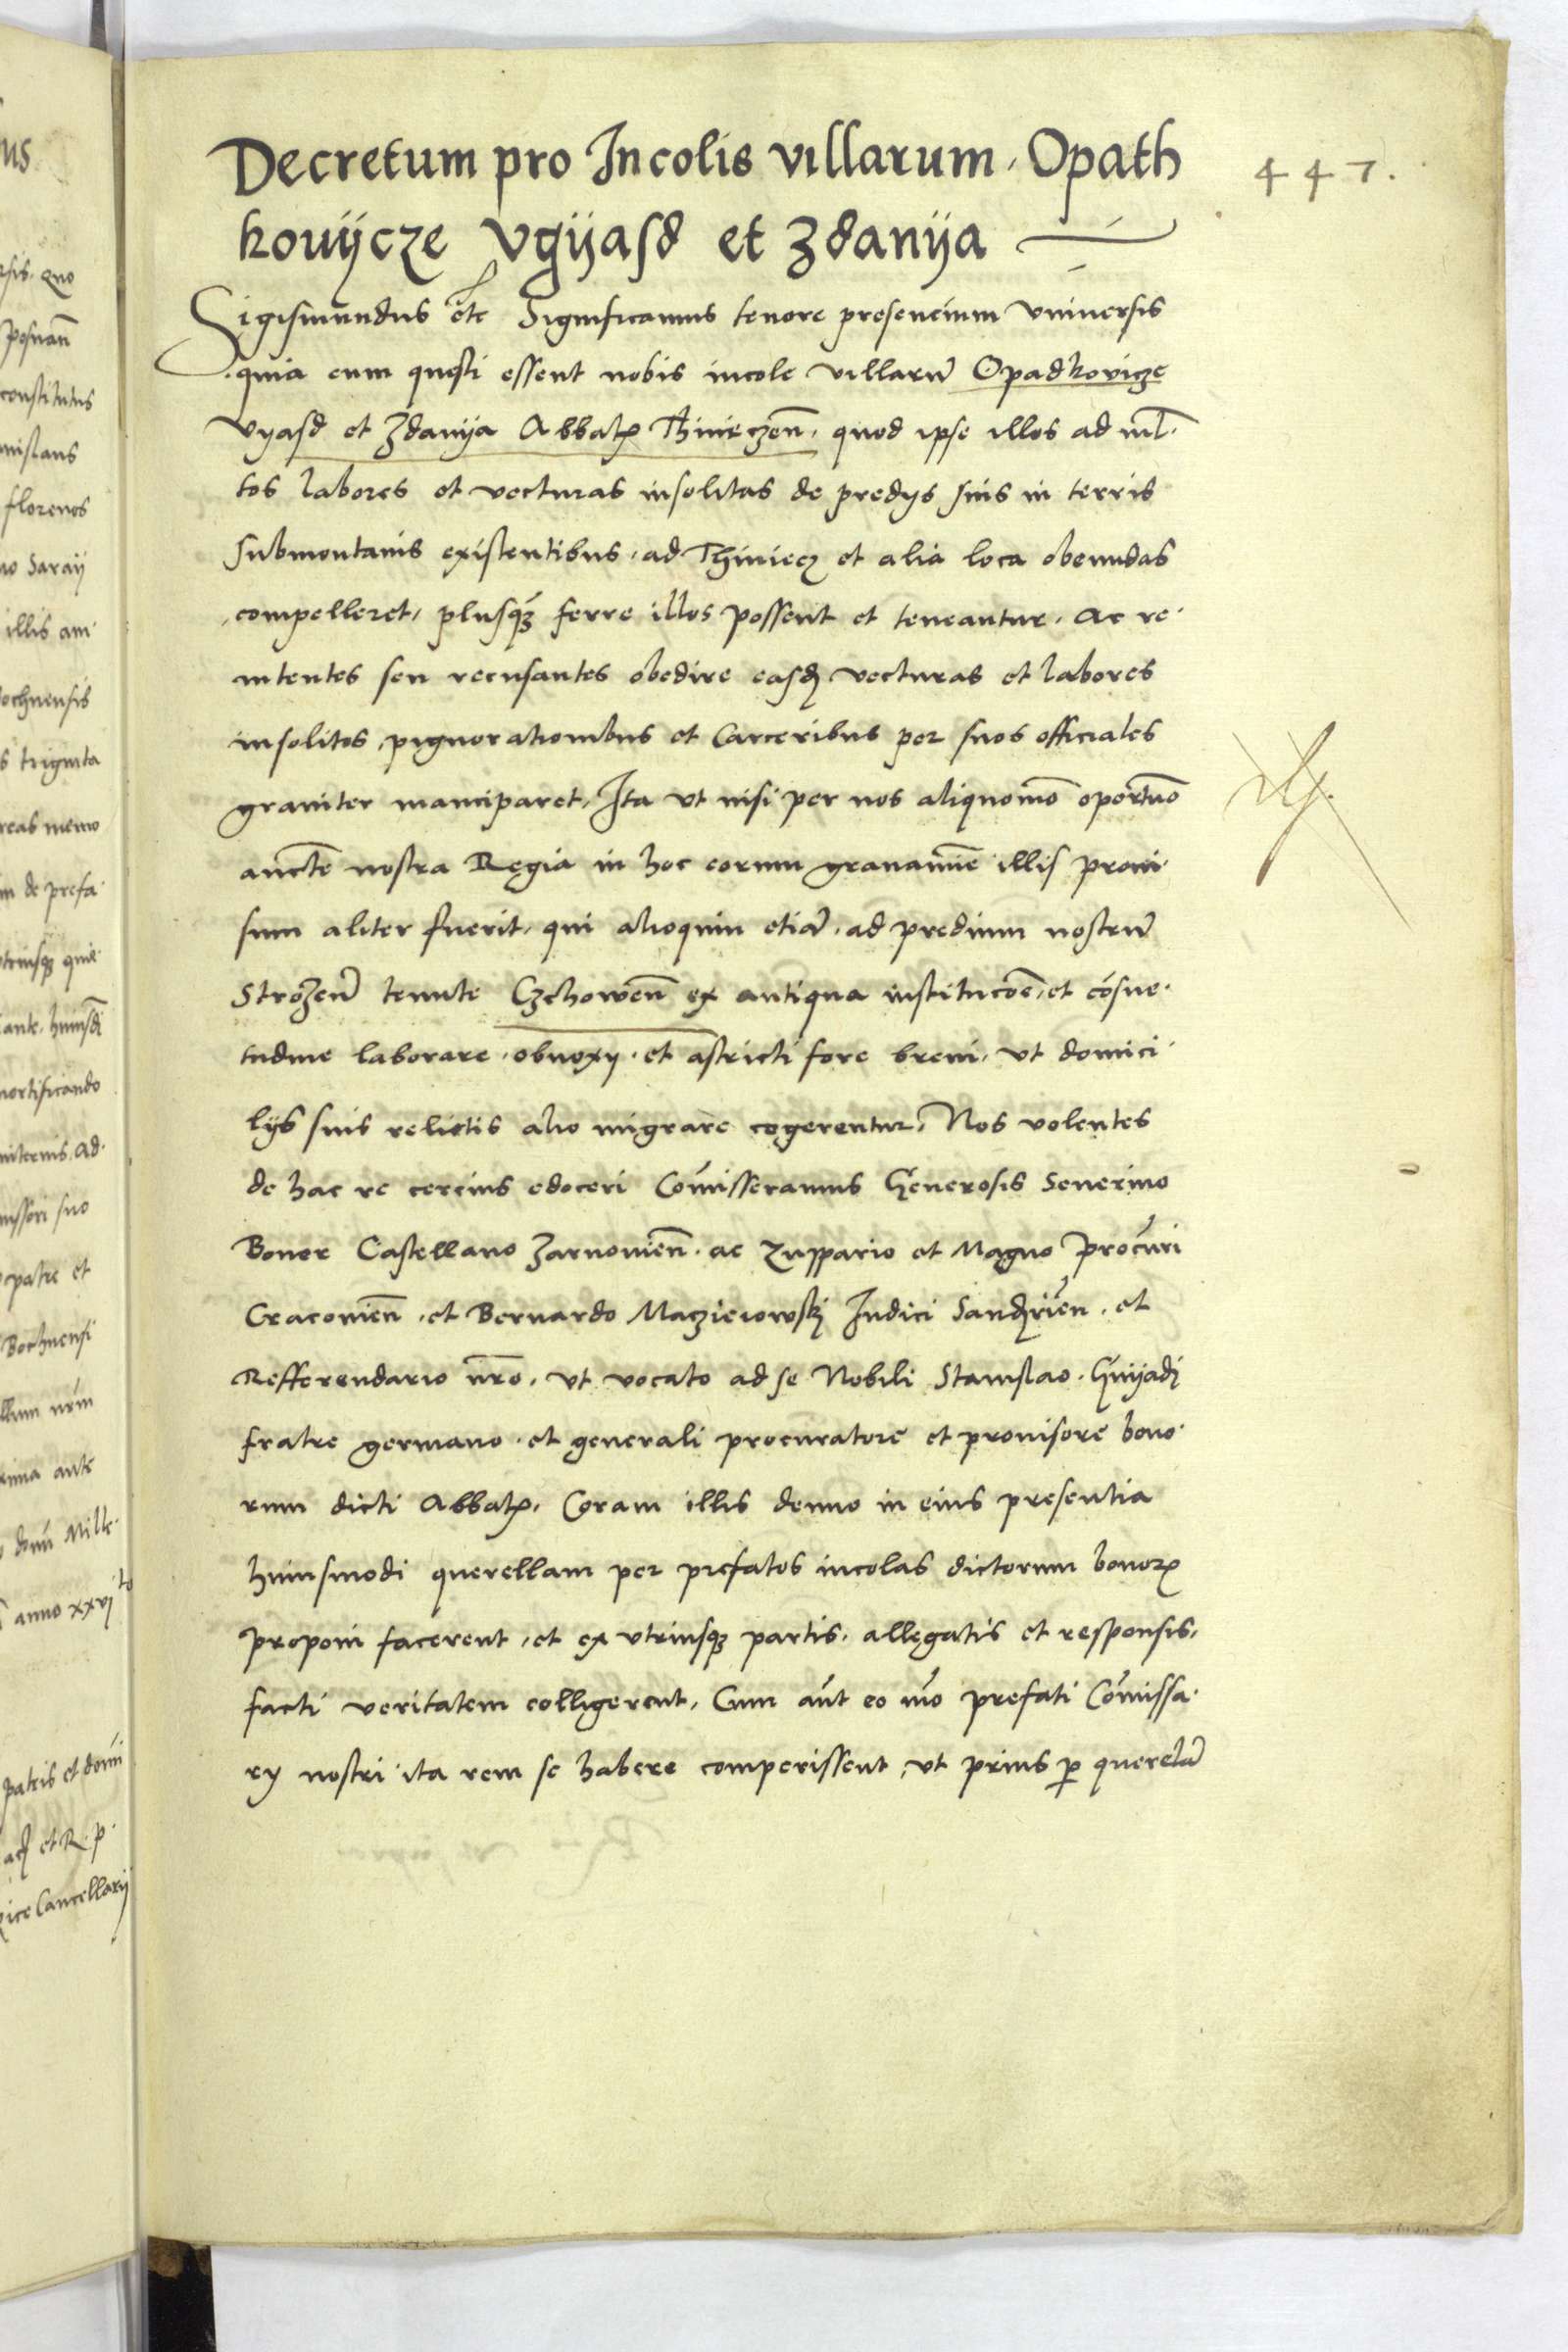 Decretum pro Incolis villarum Opath
kovijcze Vgijasd et Zdanija
447.
Sigismundus etc Significamus tenore presencium Vniversis
quia cum questi essent nobis incole villarum̄ Opadkovicze
Vyasd et Zdanija Abbatꝭ Thinieczen̄. quod ipse illos ad ml̄
tos labores et vecturas insolitas de predijs suis in terris
submontanis existentibus. ad Thiniecz et alia loca obeundas
compelleret, plusqꝫ ferre illos possent et teneantur. ac re
nitentes seu recusantes obedire easdꝫ vecturas et labores
insolitos, pignorationibus et Carceribus per suos officiales
graviter manciparet, Ita vt nisi per nos aliquomo᷃ oportuno
aucte᷃ nostra Regia in hoc eorum gravamine᷃ illis provi
sum aliter fuerit. qui alioquin etia᷃. ad predium nostru᷃
Strozen᷃ tenute Czchowen̄ ex antiqua institucoe᷃, et co᷃sue
tudine laborare. obnoxij. et astricti fore breui. vt domici
lijs suis relictis alio migrare cogerentur, Nos volentes
de hac re cercius edoceri Com᷃isseramus Generosis Seuerino
Boner Castellano Zarnouien̄. ac Zuppario et Magno Procu᷃ri
Cracouien̄. et Bernardo Macziewski Iudici Sandꝫrien᷃. et
Refferendario nr᷃o. vt vocato ad se Nobili Stanislao. Gnijadi
fratre germano. et generali procuratore et prouisore bono
rum dicti Abbatꝭ. Coram illis denuo in eius presentia
huiusmodi querellam per prefatos incolas dictorum bonorꝭ
proponi facerent, et ex vtriusqꝫ partis. allegatis et responsis,
facti veritatem colligerent, Cum au᷃t eo mo᷃ prefati Com᷃issa
rij nostri ita rem se habere comperissent, vt prius ꝑ querela᷃